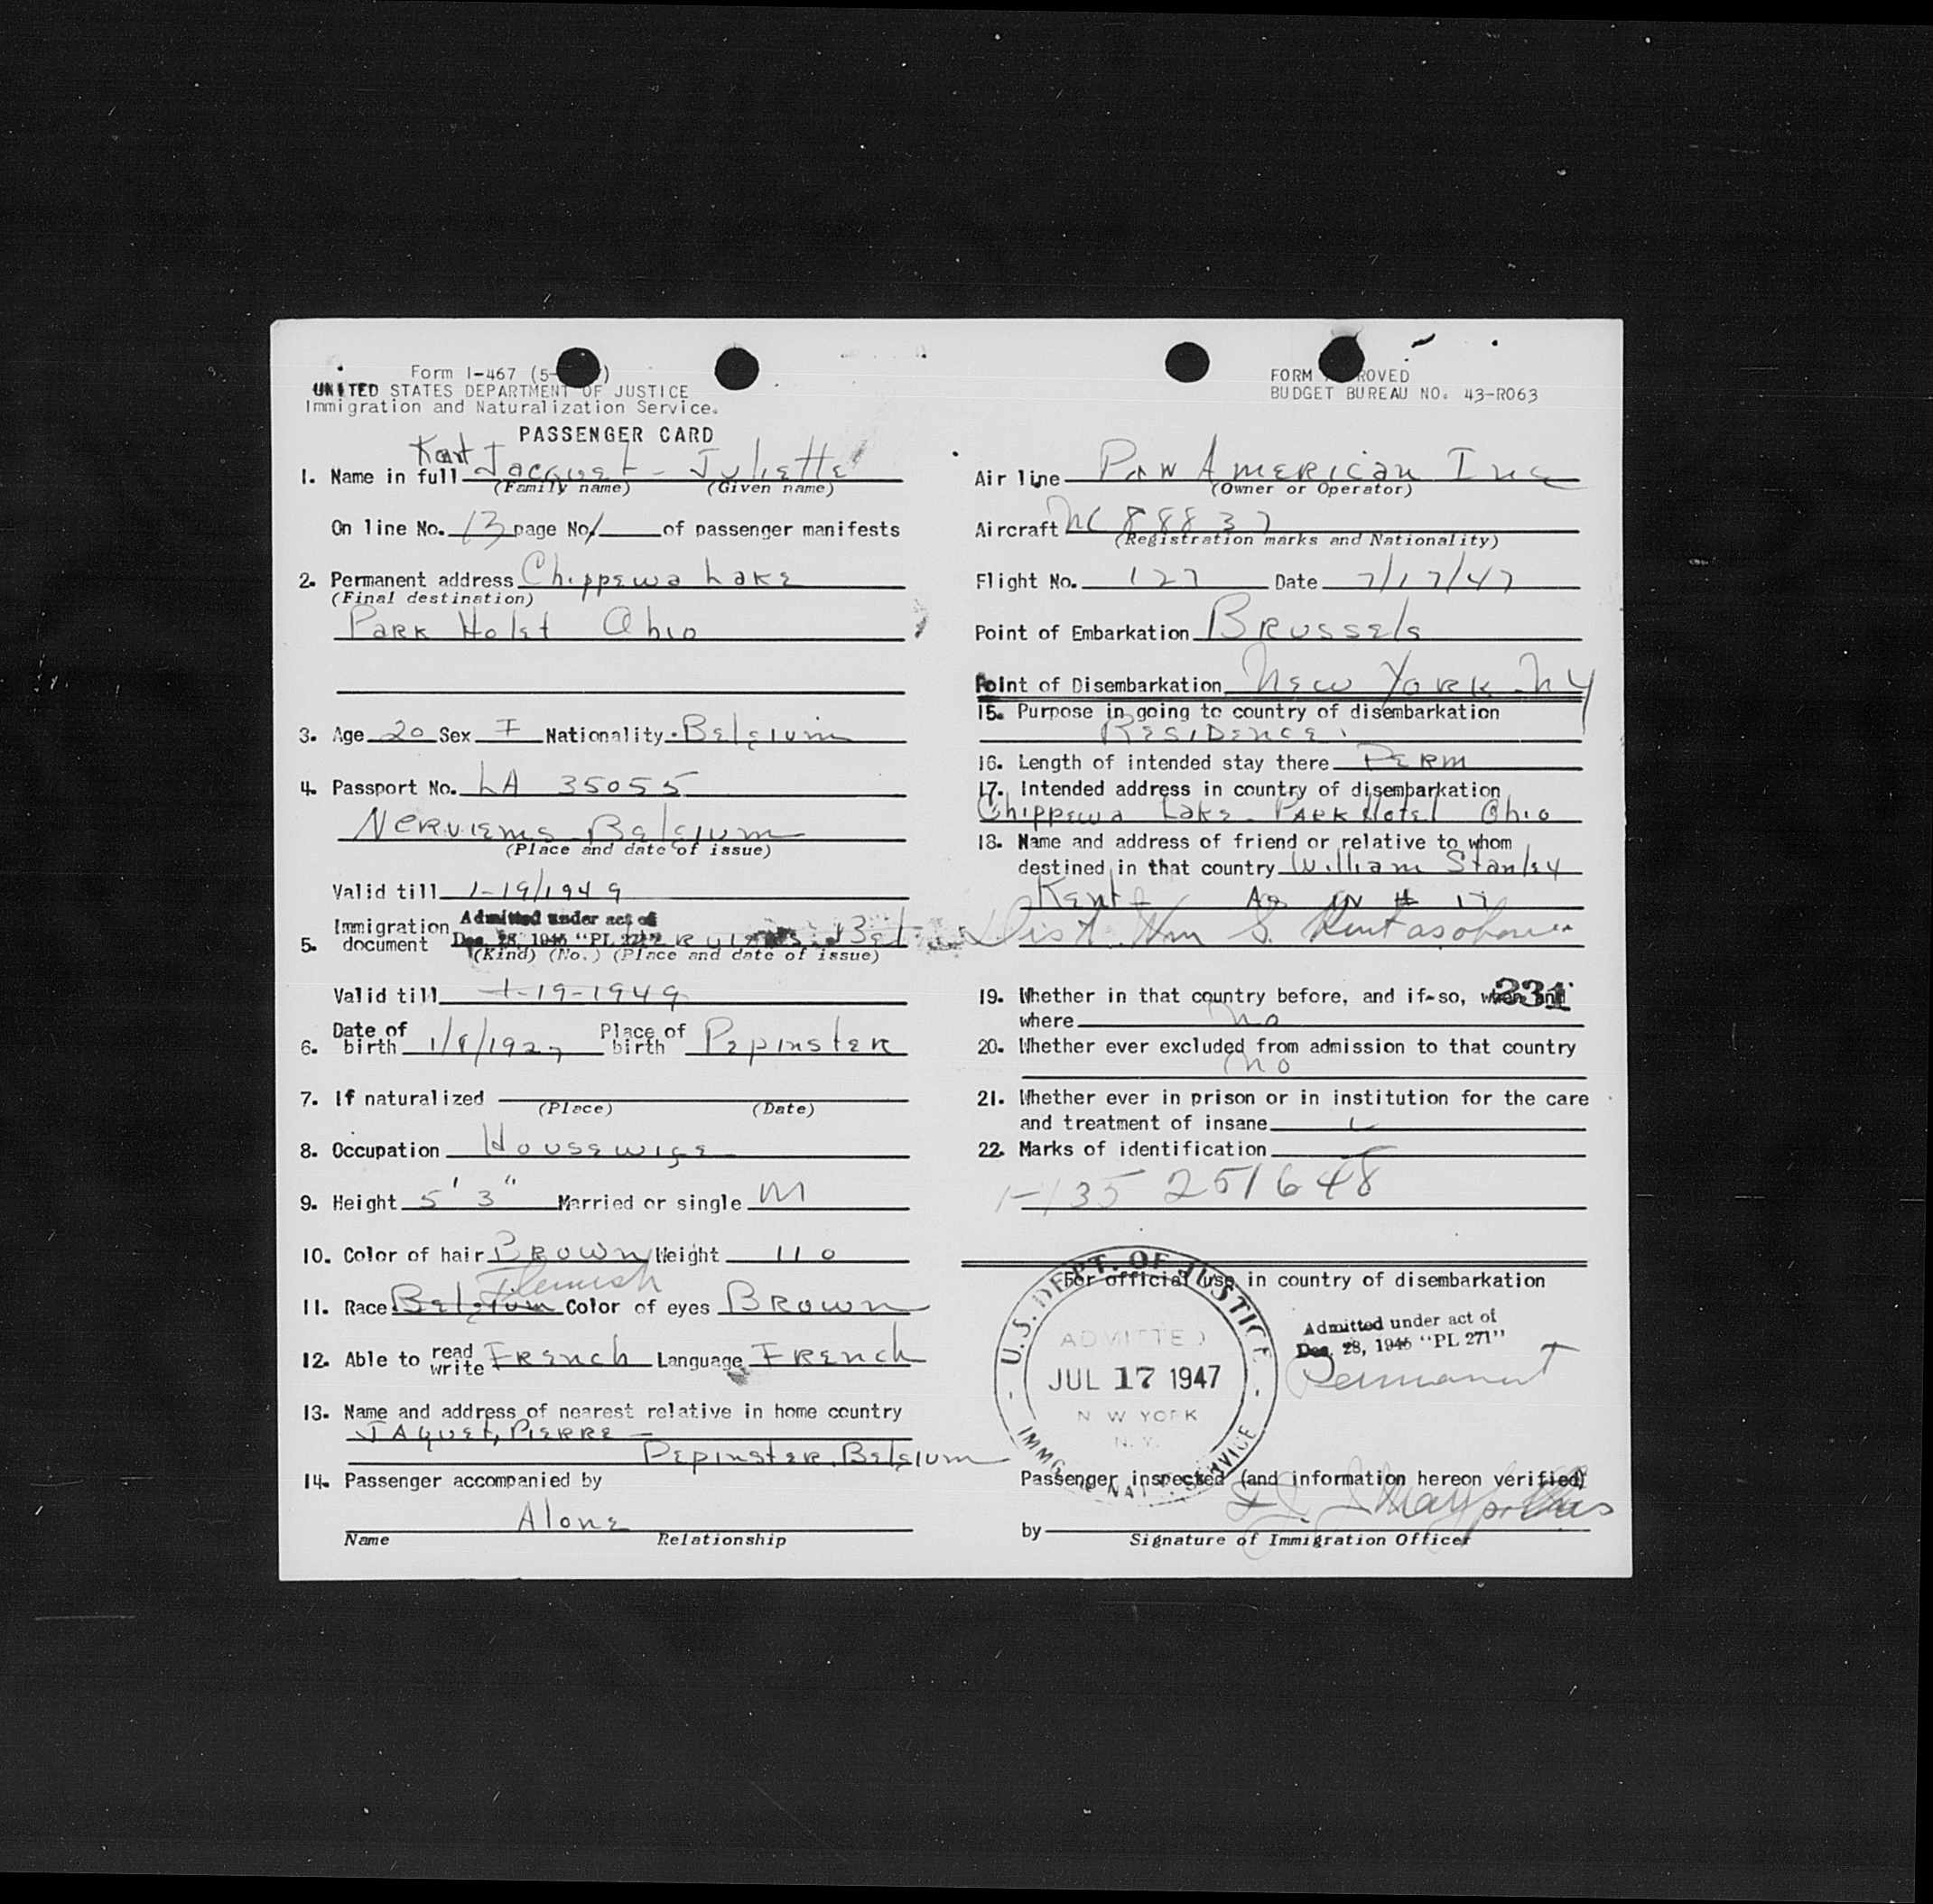 Form I-467 (5-
UNITED STATES DEPARTMENT OF JUSTICE
Immigration and Naturalization Service.
PASSENGER CARD
Kent
1. Name in full Jacquet - Juliette
(Family name) (Given name)
On line No. 13 page No. 1 of passenger manifests
2. Permanent address Chippewa Lake
(Final destination)
Park Holet Ohio
3. Age 20 Sex F Nationality Belgium
4. Passport No. LA 35055
Nerviems Belgium
(Place and date of issue)
Valid till 1-19/1949
5. Immigration document Admitted under act of
Dec. 28, 1945 "PL 271" Bel.
(Kind) (No.) (Place and date of issue)
Valid till 1-19-1949
6. Date of birth 1/8/1927 Place of birth Pepinster
7. If naturalized
(Place) (Date)
8. Occupation Housewife
9. Height 5' 3" Married or single M
10. Color of hair Brown Weight 110
Flemish
11. Race Belgium Color of eyes Brown
12. Able to read write French Language French
13. Name and address of nearest relative in home country
Jaquet, Pierre -
Pepinster, Belgium
14. Passenger accompanied by
Alone
Name Relationship
FORM APPROVED
BUDGET BUREAU NO. 43-R063
Air line Pan American Inc
(Owner or Operator)
Aircraft NC 88837
(Registration marks and Nationality)
Flight No. 127 Date 7/17/47
Point of Embarkation Brussels
Point of Disembarkation New York NY
15. Purpose in going to country of disembarkation
Residence
16. Length of intended stay there Perm
17. Intended address in country of disembarkation
Chippewa Lake Park Hotel Ohio
18. Name and address of friend or relative to whom
destined in that country William Stanley
Kent # 17
Wm S. Kent
231
19. Whether in that country before, and if so, when and
where no
20. Whether ever excluded from admission to that country
no
21. Whether ever in prison or in institution for the care
and treatment of insane
22. Marks of identification
1-135 251648
For official use in country of disembarkation
U.S. DEPT. OF JUSTICE
ADMITTED
JUL 17 1947
NEW YORK
N.Y.
IMMG. NAT. SERVICE
Admitted under act of
Dec. 28, 1945 "PL 271"
Permanent
Passenger inspected (and information hereon verified)
by
Signature of Immigration Officer